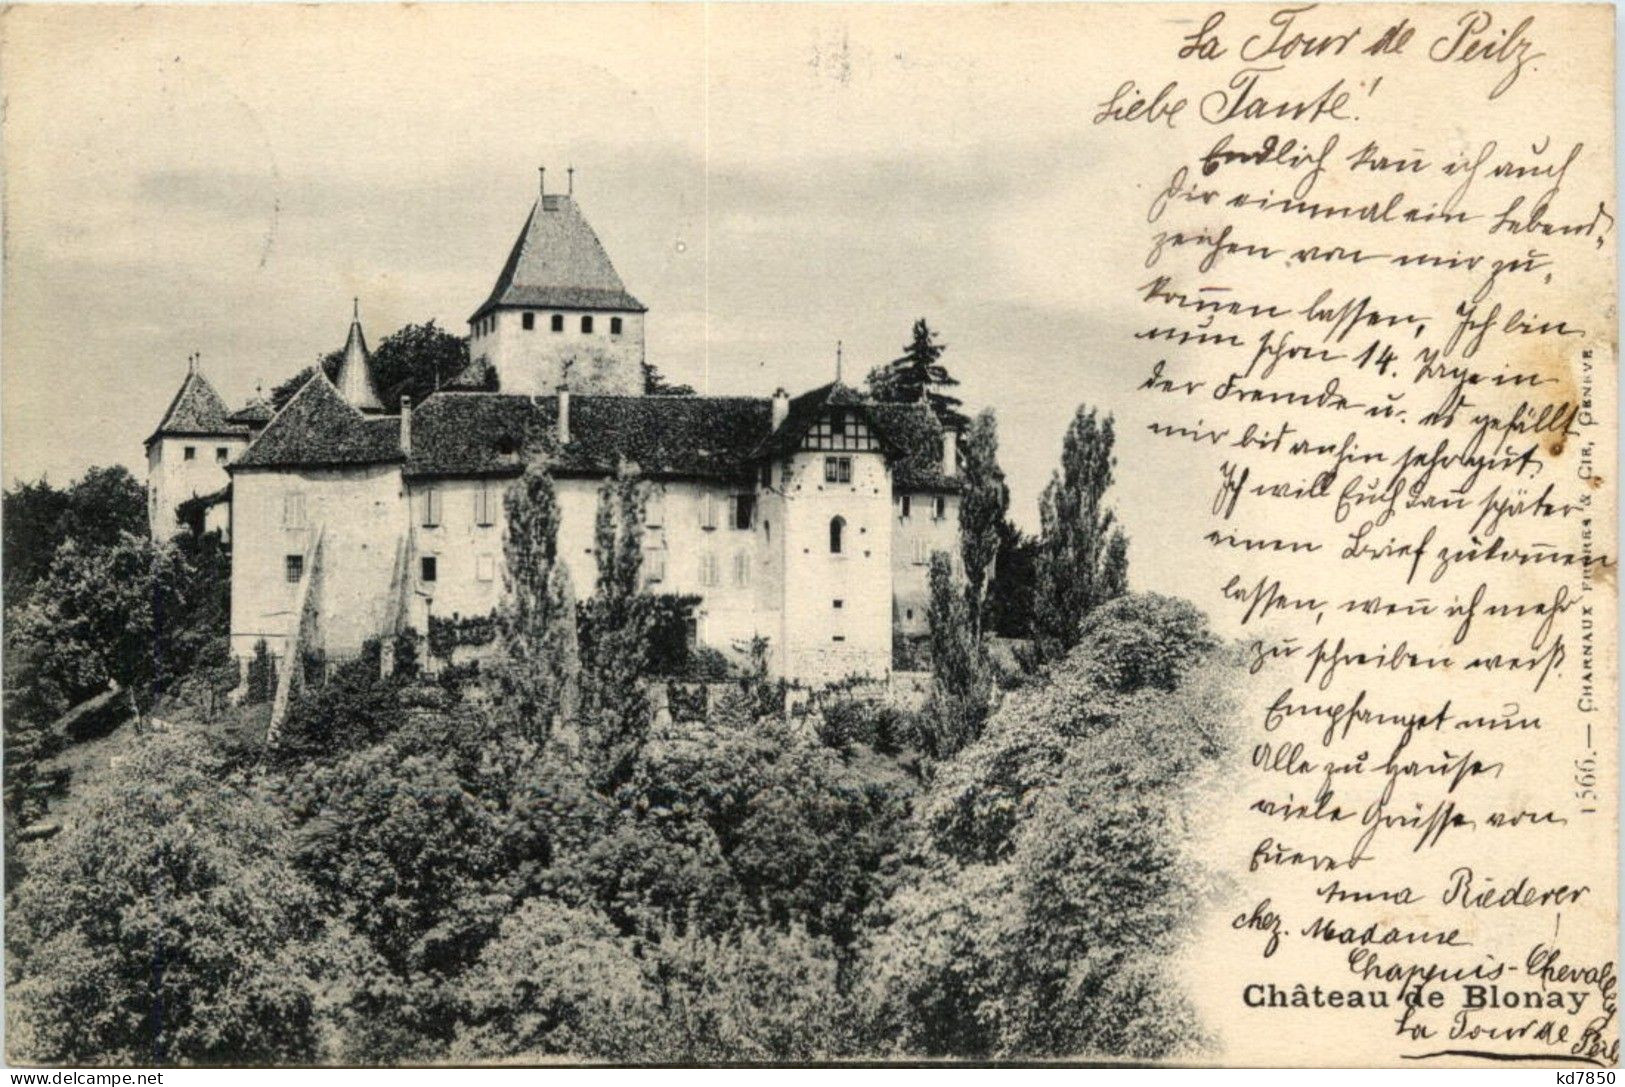 La Tour de Peilz.
Liebe Tante!
Endlich kan̅ ich auch
Dir einmal ein Lebens-
zeichen von mir zu-
kom̅en lassen, Ich bin
nun schon 14. Tage in
der Fremde u. es gefällt
mir bis anhin sehr gut.
Ich will Euch dan̅ später
einen Brief zukom̅en
lassen, wen̅ ich mehr
zu schreiben weiß.
Empfanget nun
Alle zu Hause
viele Grüsse von
Euerer
Anna Riederer
chez. Madame
Chappuis-Chevalley
La Tour de Peilz
Château de Blonay
1566. — CHARNAUX FRÈRES & CIE, GENÈVE
kd7850